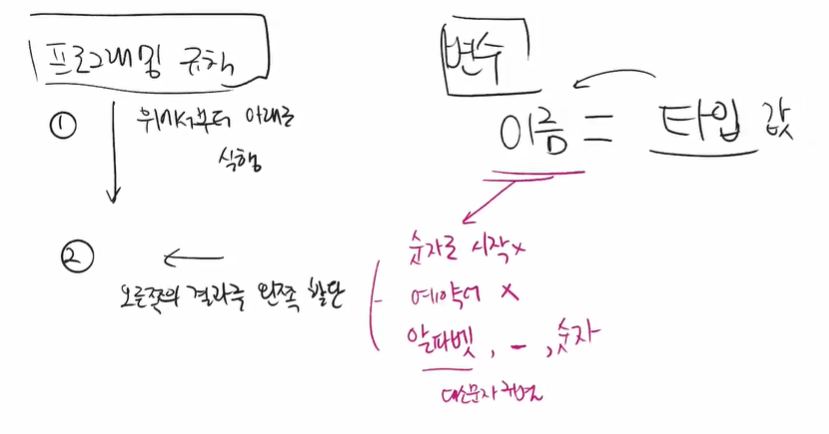 프로그래밍 규칙
① 위에서부터 아래로
실행
② ←
오른쪽의 결과를 왼쪽 할당
변수
이름 = 타입 값
숫자로 시작 x
예약어 x
알파벳, _, 숫자
대소문자 구별